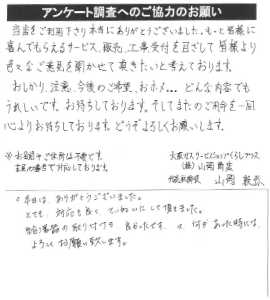 アンケート調査へのご協力のお願い
当店をご利用下さり本当にありがとうございました。もっと皆様に
喜んでもらえるサービス、販売、工事受付を目ざして皆様より
色々なご意見を聞かせて頂きたいと考えております。
おしかり、注意、今後のご希望、おホメ… どんな内容でも
うれしいです。お待ちしております。そしてまたのご用命を一同
心よりお待ちしております。どうぞよろしくお願いします。
※お名前やご住所は不要です。
で対応しております。
大阪ガスサービスショップくらしプラス
(株)山岡商店
山岡
本日は、ありがとうございました。
とても、対応も良く、ていねいにして頂きました。
給湯器の取り付けも 良かったです。又、何かあった時には、
よろしくお願い致します。